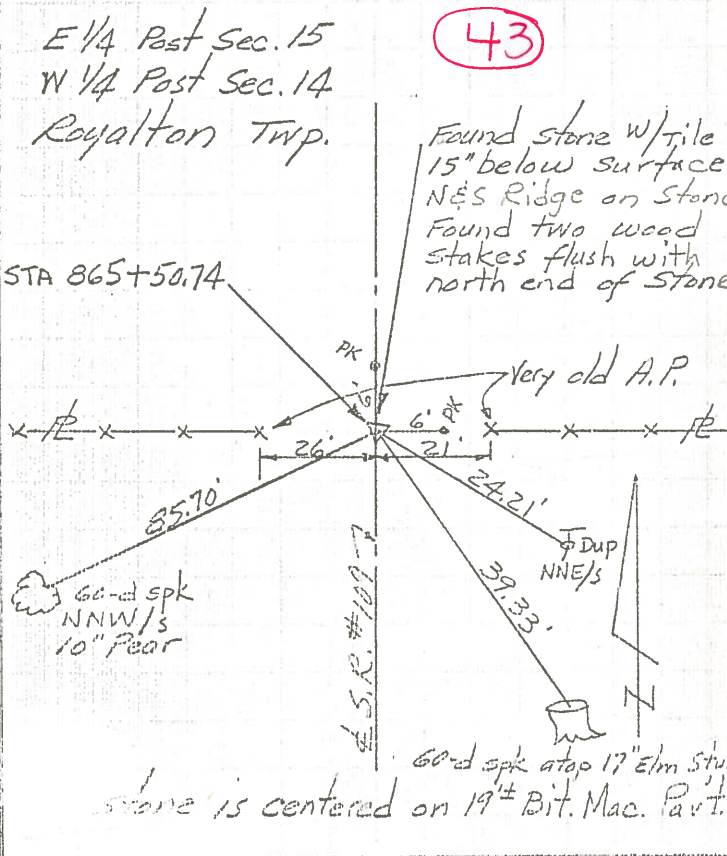 E 1/4 Post Sec. 15
W 1/4 Post Sec. 14
Royalton Twp.
43
Found stone W/Tile
15" below surface
N&S Ridge on Stone
Found two wood
stakes flush with
north end of Stone
STA 865+50.74
PK
6'
Very old A.P.
PL
6'
PK
PL
26'
21'
85.70'
24.21'
Dup
NNE/s
60-d spk
NNW/s
10" Pear
39.33'
℄ S.R. #109
N
60-d spk atop 17" Elm Stu
Stone is centered on 19'± Bit. Mac. Pav't.